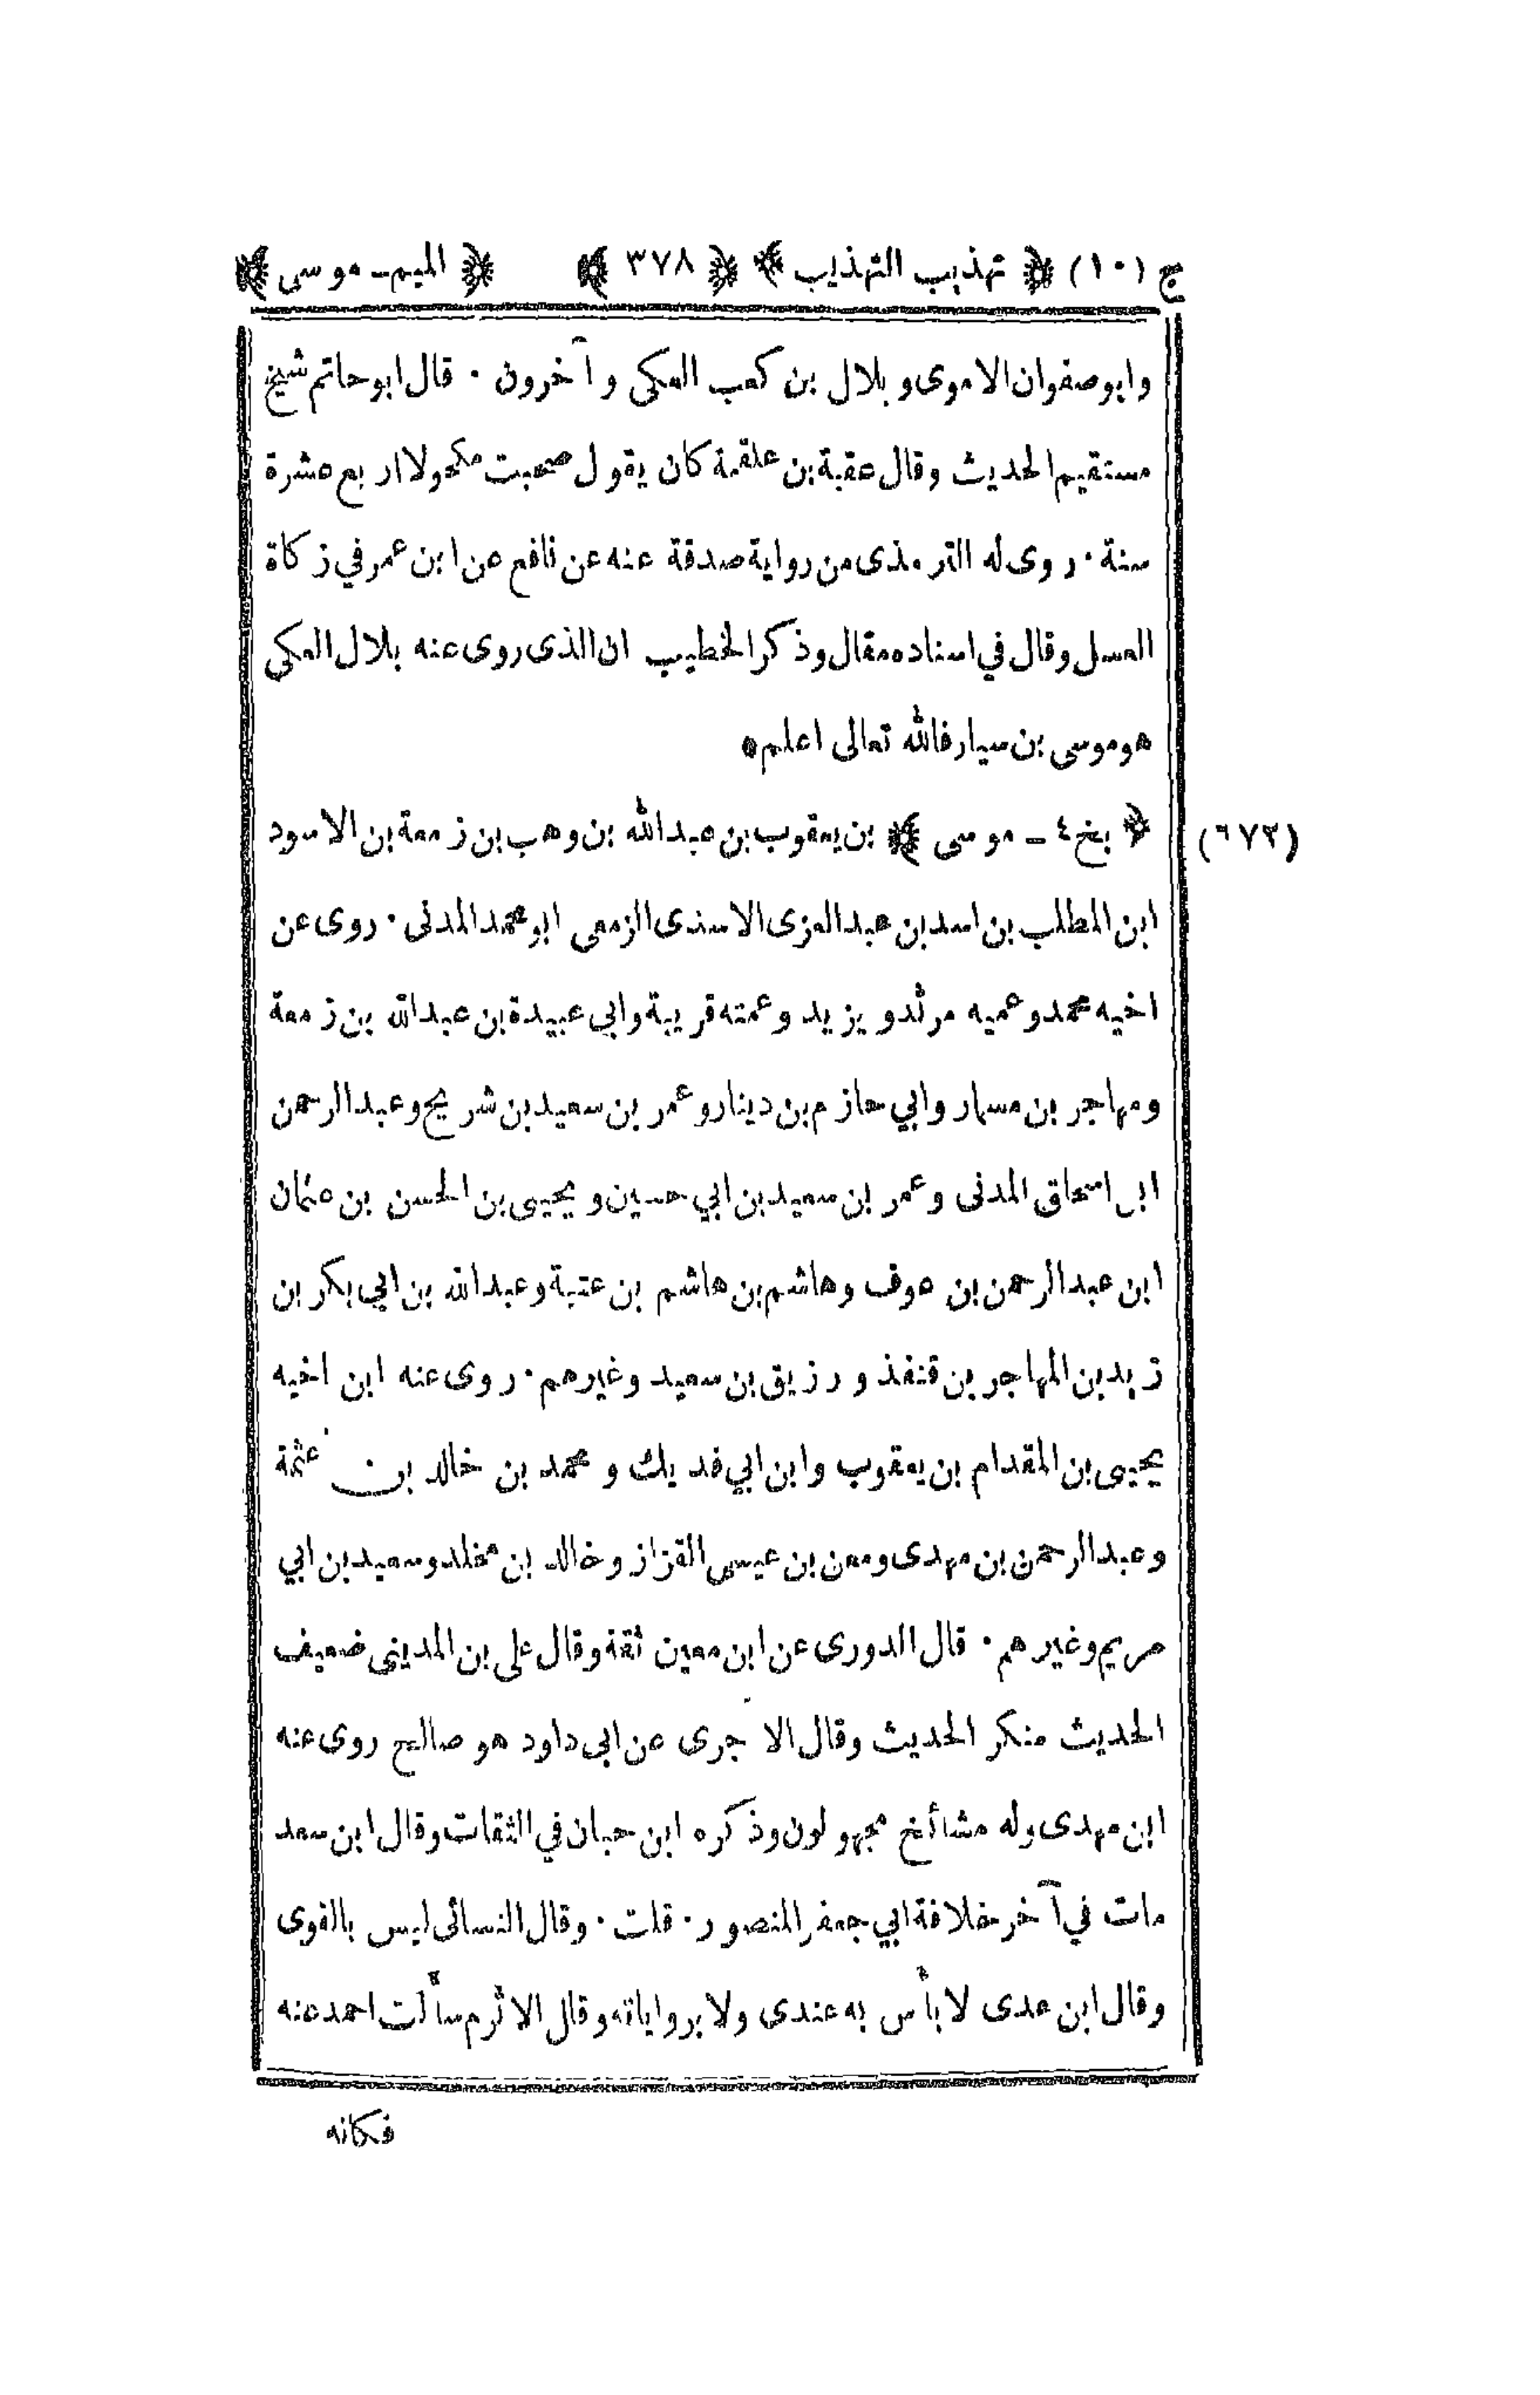 ج (١٠) ﴿ تهذيب التهذيب ﴾ ﴿ ٣٧٨ ﴾ ﴿ الميم ـ موسى ﴾
وابو صفوان الاموى و بلال بن كعب العكى و آخرون ٠ قال ابو حاتم شيخ
مستقيم الحديث وقال عقبة بن علقمة كان يقول صحبت مكحولا اربع عشرة
سنة ٠ روى له الترمذى من رواية صدقة عنه عن نافع عن ابن عمر في زكاة
العسل وقال في اسناده مقال وذكر الخطيب ان الذى روى عنه بلال العكى
هو موسى بن سيار فالله تعالى اعلم ٥
(٦٧٢) ﴿ بخ ٤ ـ موسى ﴾ بن يعقوب بن عبدالله بن وهب بن زمعة بن الاسود
ابن المطلب بن اسد بن عبد العزى الاسدى الزمعى ابو محمد المدنى ٠ روى عن
اخيه محمد وعميه مرثد و يزيد وعمته قريبة وابي عبيدة بن عبدالله بن زمعة
ومهاجر بن مسمار وابي حازم بن دينار وعمر بن سعيد بن شريح وعبد الرحمن
ابن اسحاق المدنى وعمر بن سعيد بن ابي حسين و يحيى بن الحسن بن عثمان
ابن عبد الرحمن بن عوف وهاشم بن هاشم بن عتبة وعبدالله بن ابي بكر بن
زيد بن المهاجر بن قنفذ ورزيق بن سعيد وغيرهم ٠ روى عنه ابن اخيه
يحيى بن المقدام بن يعقوب وابن ابي فديك و محمد بن خالد بن عثمة
وعبد الرحمن بن مهدى ومعن بن عيسى القزاز وخالد بن مخلد وسعيد بن ابي
مريم وغيرهم ٠ قال الدورى عن ابن معين ثقة وقال على بن المدينى ضعيف
الحديث منكر الحديث وقال الآجرى عن ابى داود هو صالح روى عنه
ابن مهدى وله مشائخ مجهولون وذكره ابن حبان في الثقات وقال ابن سعد
مات في آخر خلافة ابي جعفر المنصور ٠ قلت ٠ وقال النسائى ليس بالقوى
وقال ابن عدى لا بأس به عندى ولا برواياته وقال الاثرم سألت احمد عنه
فكانه